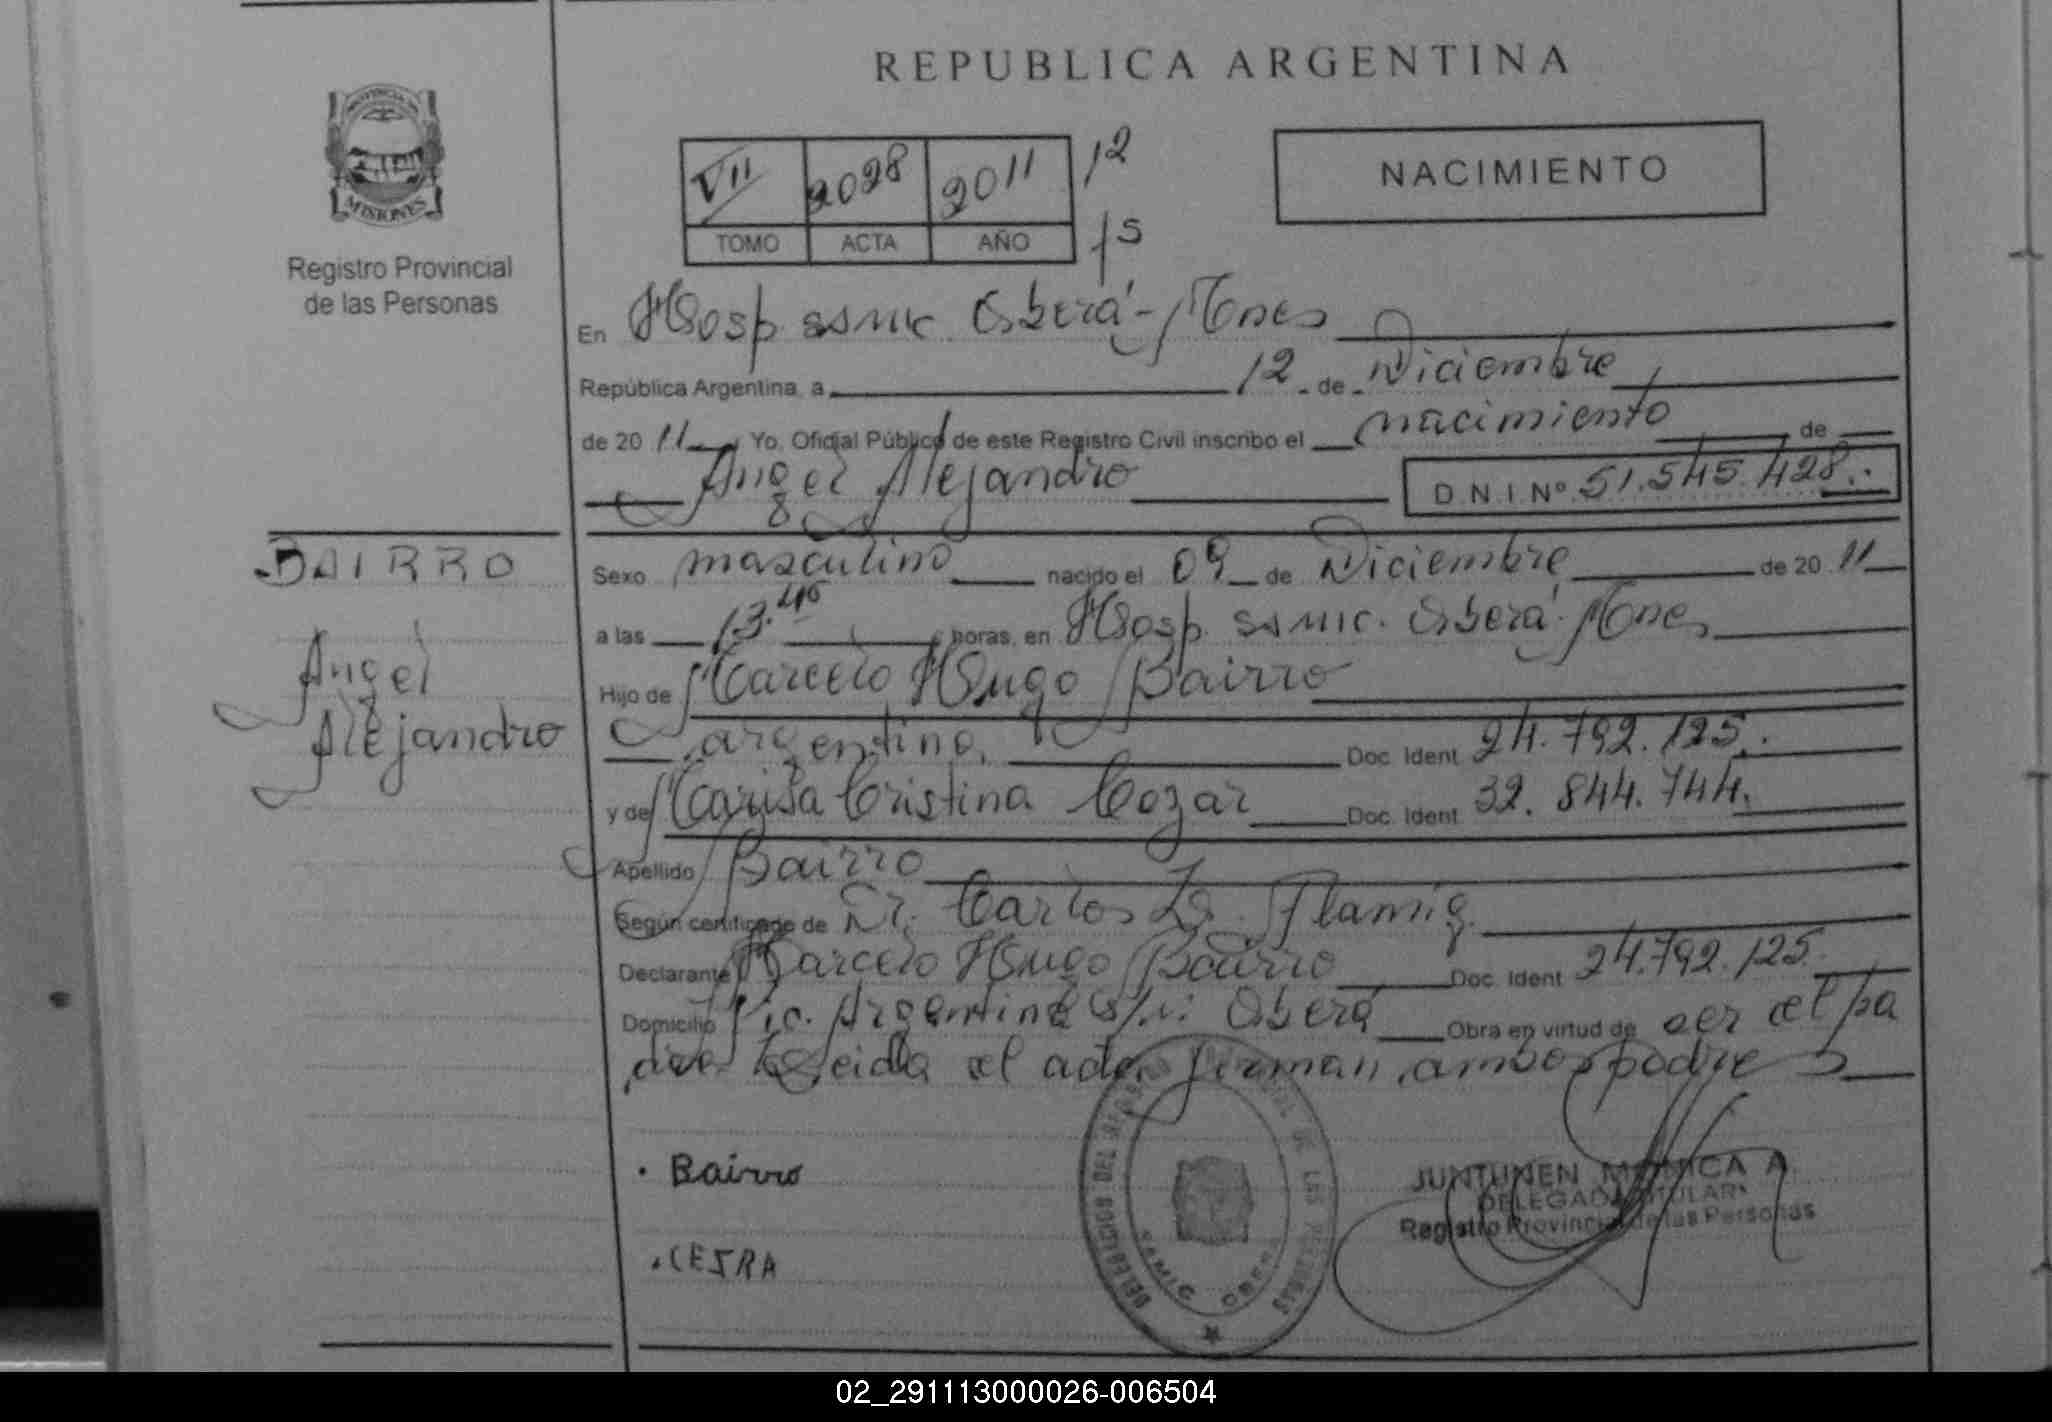 REPUBLICA ARGENTINA
PROVINCIA DE
MISIONES
Registro Provincial
de las Personas
VII 2028 2011 12
TOMO ACTA AÑO 15
NACIMIENTO
En Hosp. SAMIC Oberá - Mnes
República Argentina, a 12 de Diciembre
de 2011 Yo, Oficial Público de este Registro Civil inscribo el nacimiento de
Angel Alejandro D.N.I.Nº 51.545.428.
BAIRRO
Angel
Alejandro
Sexo masculino nacido el 09 de Diciembre de 2011
a las 13.46 horas, en Hosp. SAMIC. Oberá. Mnes
Hijo de Marcelo Hugo Bairro
argentino, Doc. Ident. 24.792.125.
y de Marisa Cristina Cozar Doc. Ident. 32.844.744.
Apellido Bairro
Según certificado de Dr. Carlos Flamig
Declarante Marcelo Hugo Bairro Doc. Ident. 24.792.125.
Domicilio Argentina s/n: Oberá Obra en virtud de ser el pa
dre Leida el acta firman ambos padres
. Bairro
JUNTUNEN MONICA A.
DELEGADA TITULAR
Registro Provincial de las Personas
SAMIC OBERA
02_291113000026-006504